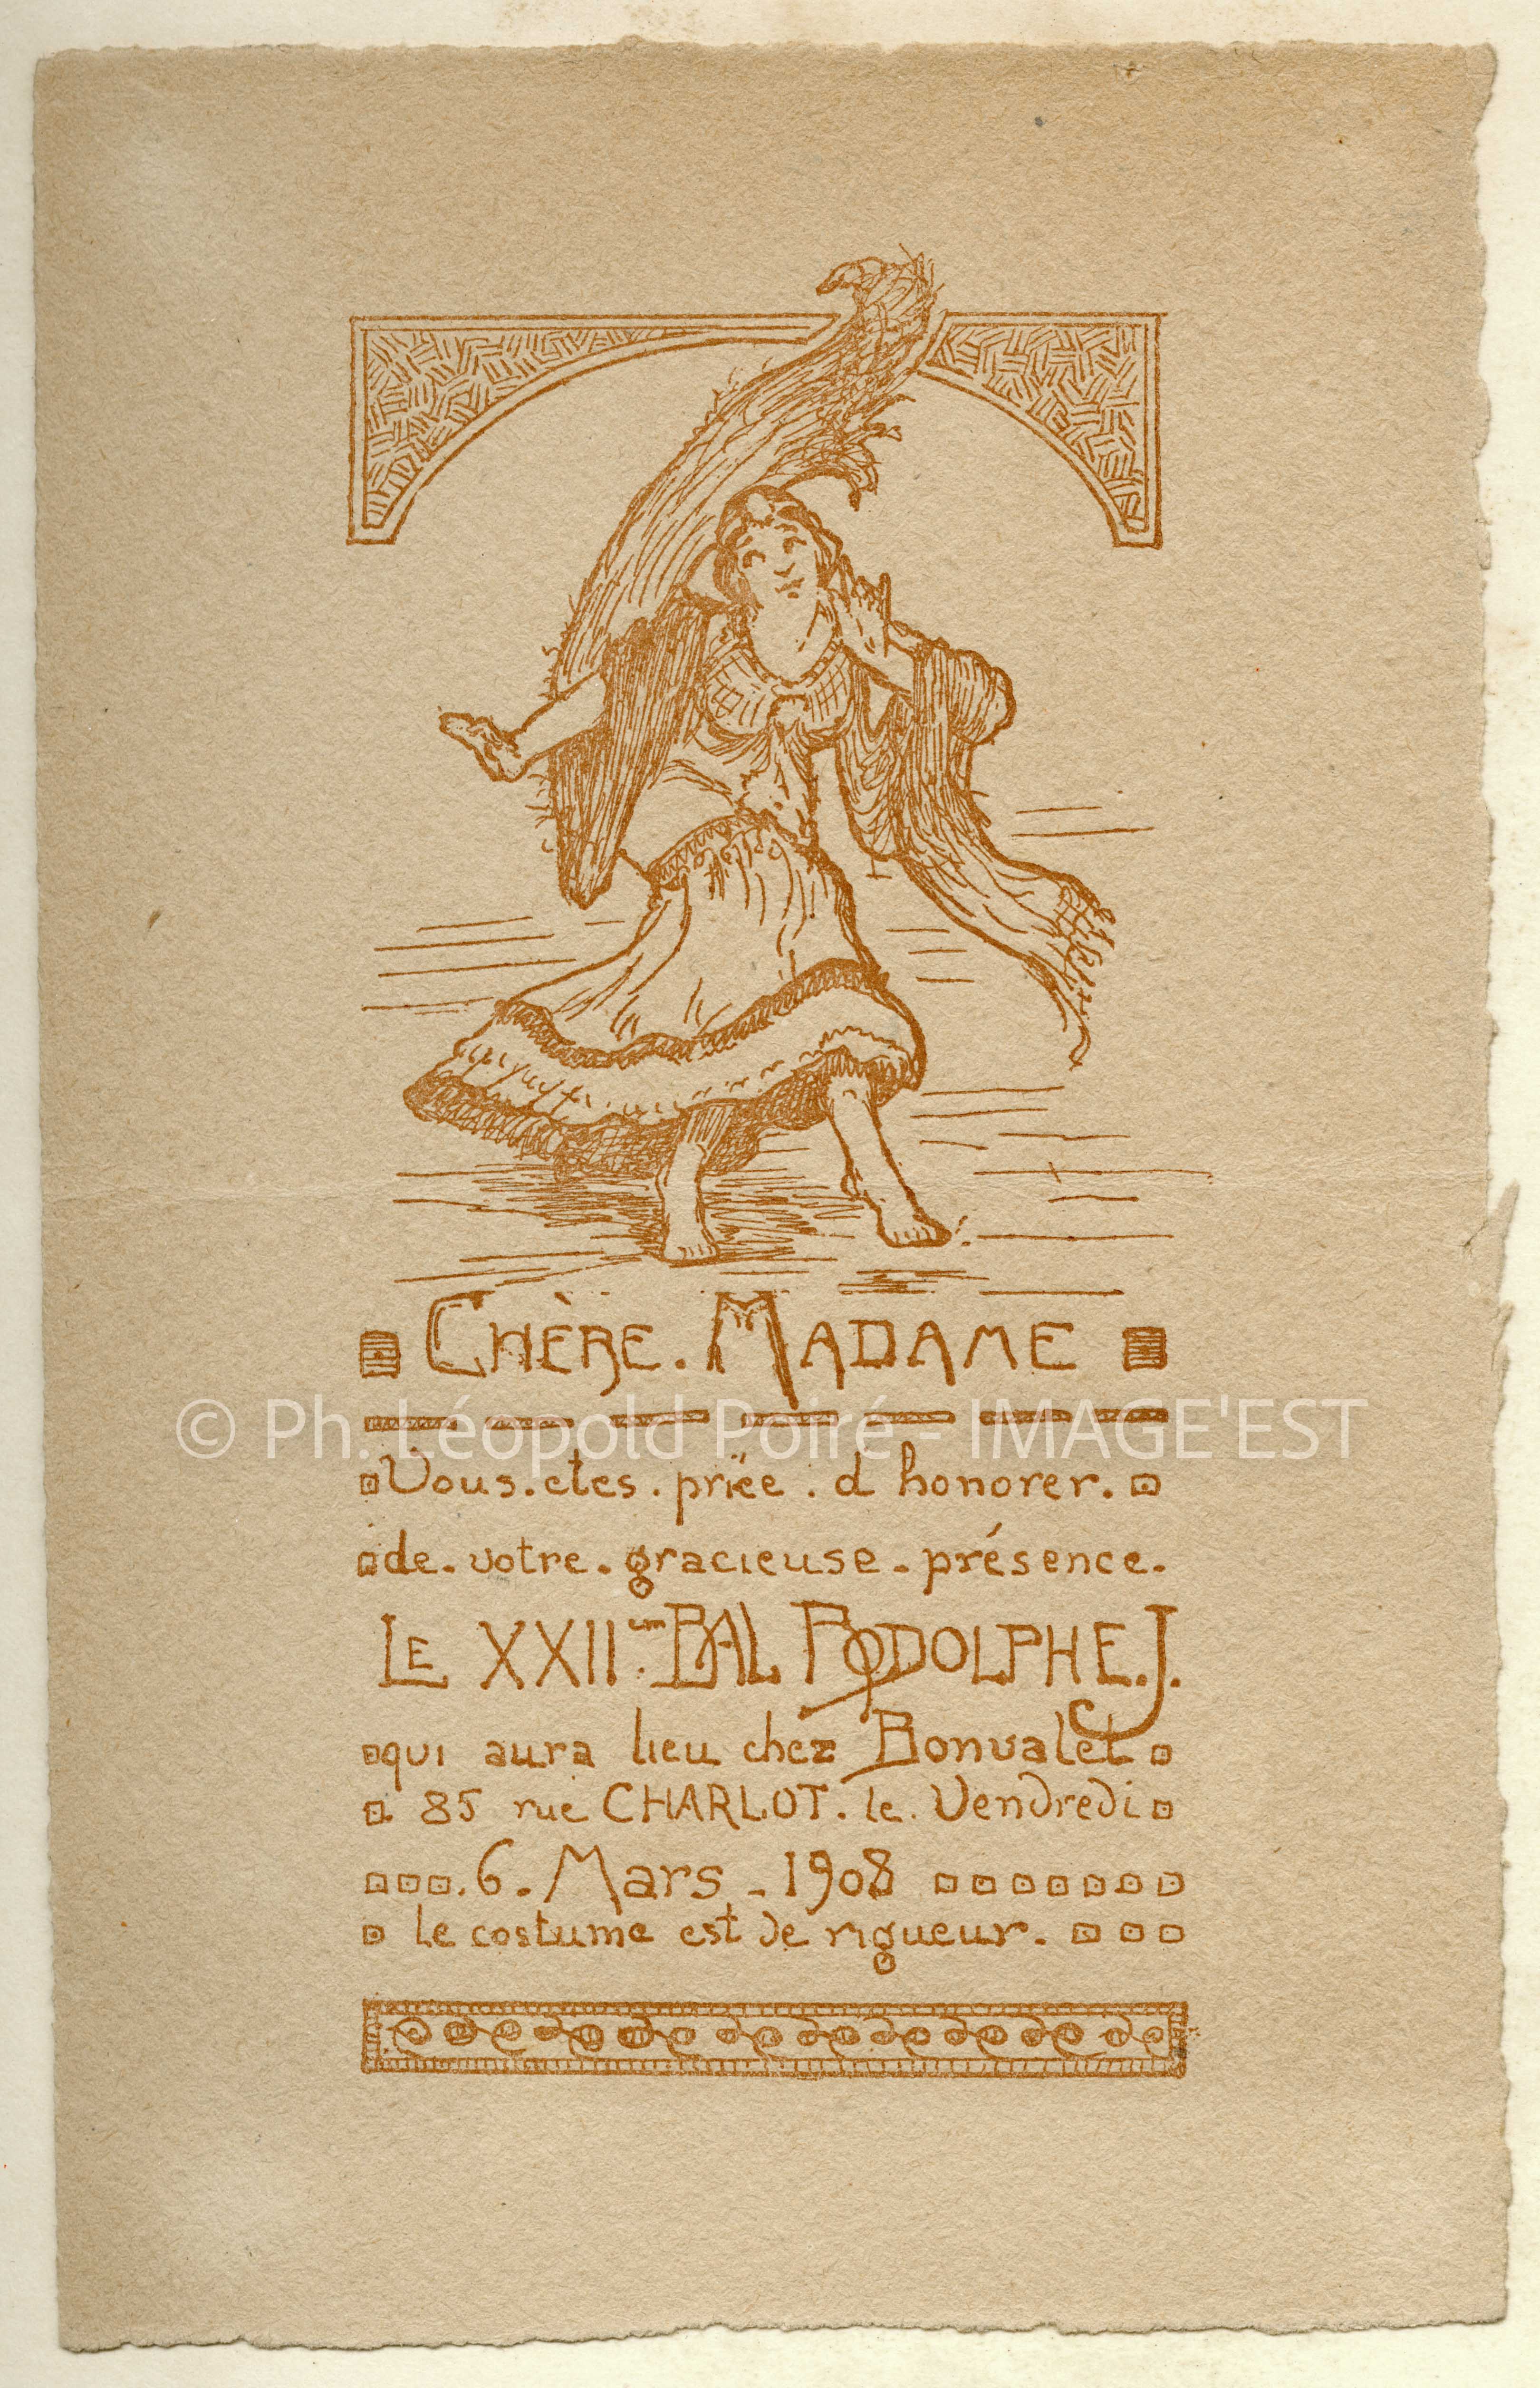 CHÈRE. MADAME
© Ph. Léopold Poiré - IMAGE'EST
Vous. etes. priée. d honorer.
de. votre. gracieuse. présence.
LE XXIIem. BAL RODOLPHE. J.
qui aura lieu chez Bonvalet
85 rue CHARLOT. le. Vendredi
6. Mars - 1908
le costume est de rigueur.